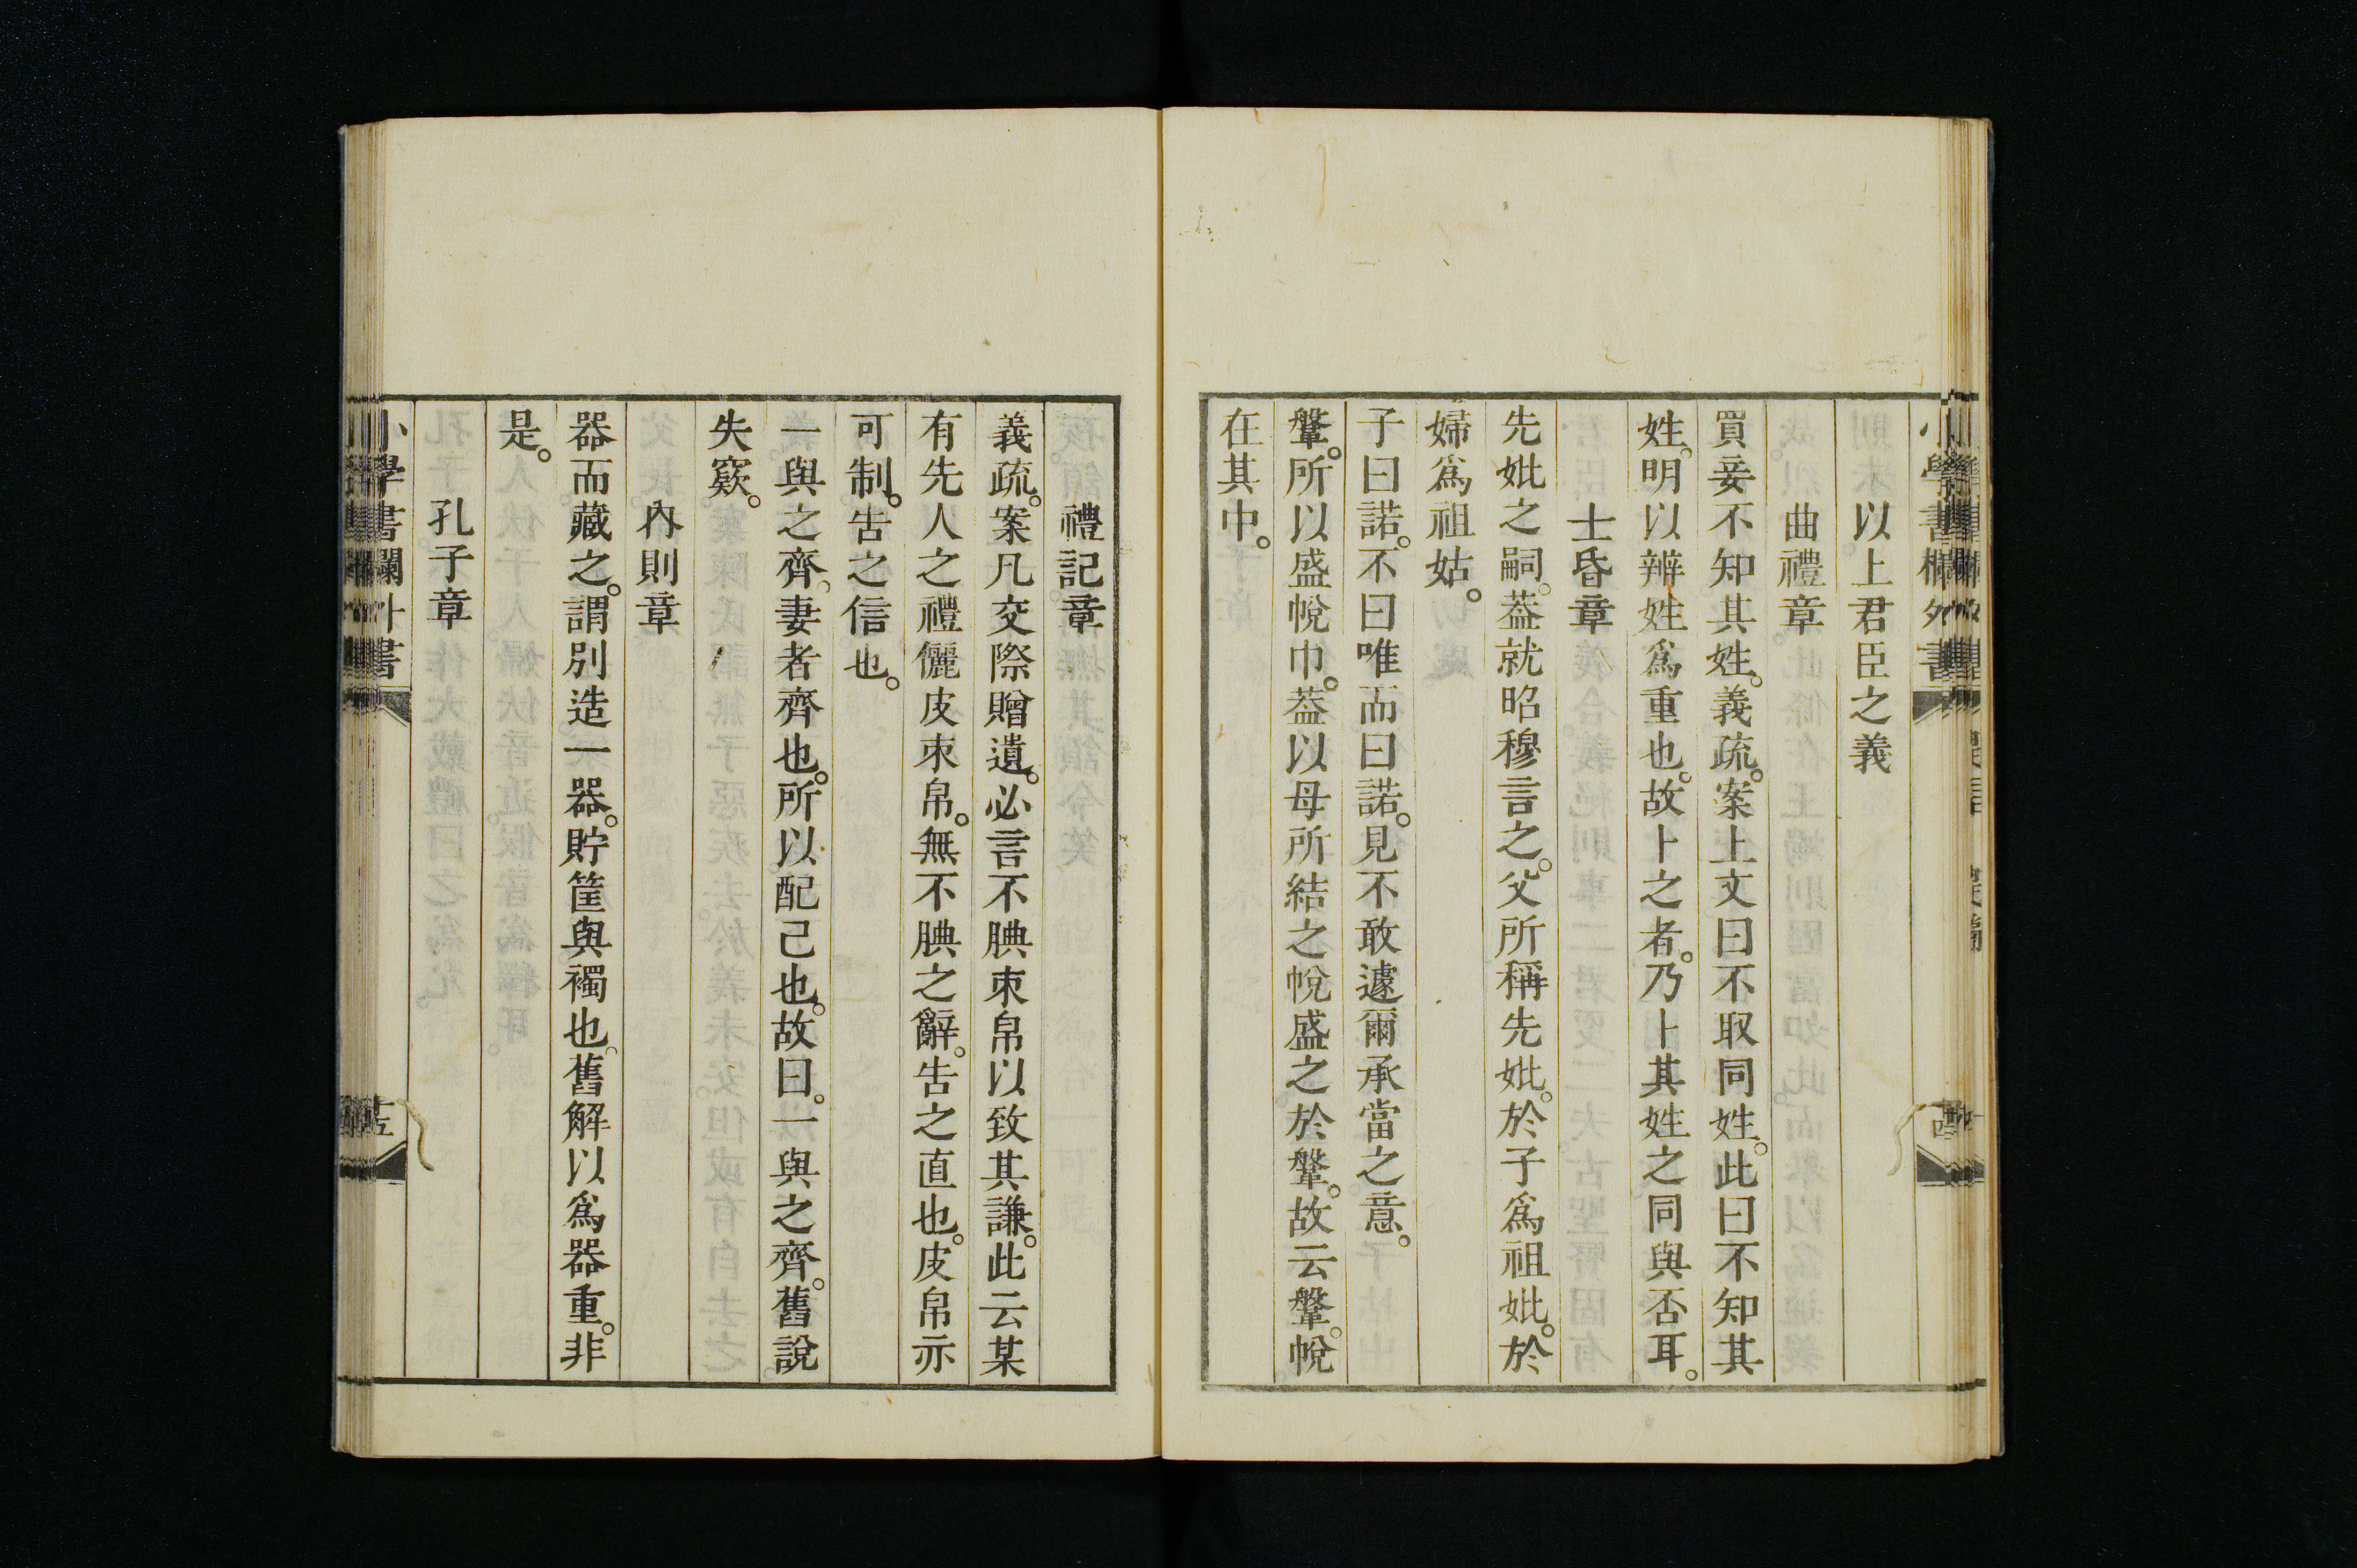 小學書欄外書
以上君臣之義
曲禮章
買妾不知其姓。義疏。案上文曰不取同姓。此曰不知其
姓。明以辨姓爲重也。故卜之者。乃卜其姓之同與否耳。
士昏章
先妣之嗣。葢就昭穆言之。父所稱先妣。於子爲祖妣。於
婦爲祖姑。
子曰諾。不曰唯而曰諾。見不敢遽爾承當之意。
鞶。所以盛帨巾。葢以母所結之帨盛之於鞶。故云鞶。帨
在其中。
禮記章
義疏。案凡交際贈遺。必言不腆束帛以致其謙。此云某
有先人之禮儷皮束帛。無不腆之辭。告之直也。皮帛亦
可制。告之信也。
一與之齊。妻者齊也。所以配己也。故曰。一與之齊。舊說
失窾。
內則章
器而藏之。謂別造一器。貯筐與襡也。舊解以爲器重。非
是。
孔子章
小學書欄外書